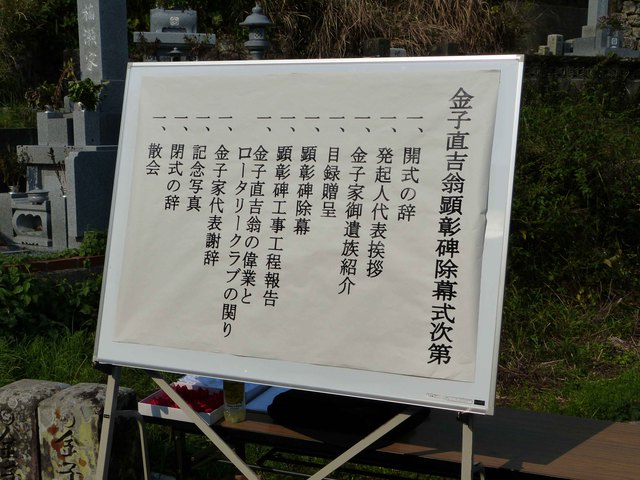 金子直吉翁顕彰碑除幕式次第
一、開式の辞
一、発起人代表挨拶
一、金子家御遺族紹介
一、目録贈呈
一、顕彰碑除幕
一、顕彰碑工事工程報告
一、金子直吉翁の偉業と
ロータリークラブの関り
一、金子家代表謝辞
一、記念写真
一、閉式の辞
一、散会
金子